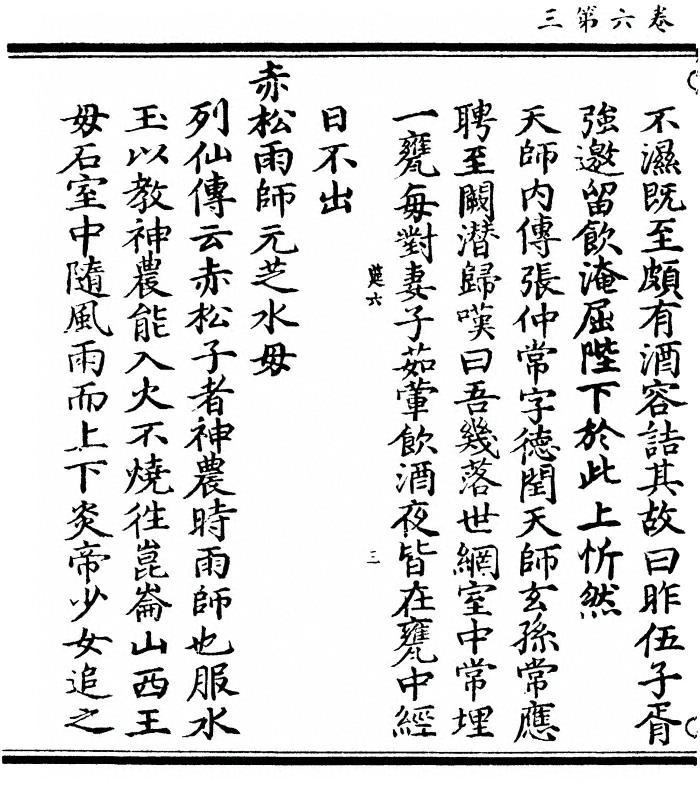 卷六第三
不濕既至頗有酒容詰其故曰昨伍子胥
強邀留飲淹屈陛下於此上忻然
天師內傳張仲常字德閏天師玄孫常應
聘至闕潛歸嘆曰吾幾落世網室中常埋
一甕每對妻子茹葷飲酒夜皆在甕中經
三
日不出
赤松雨師元芝水母
列仙傳云赤松子者神農時雨師也服水
玉以教神農能入火不燒徃崑崙山西王
母石室中隨風雨而上下炎帝少女追之